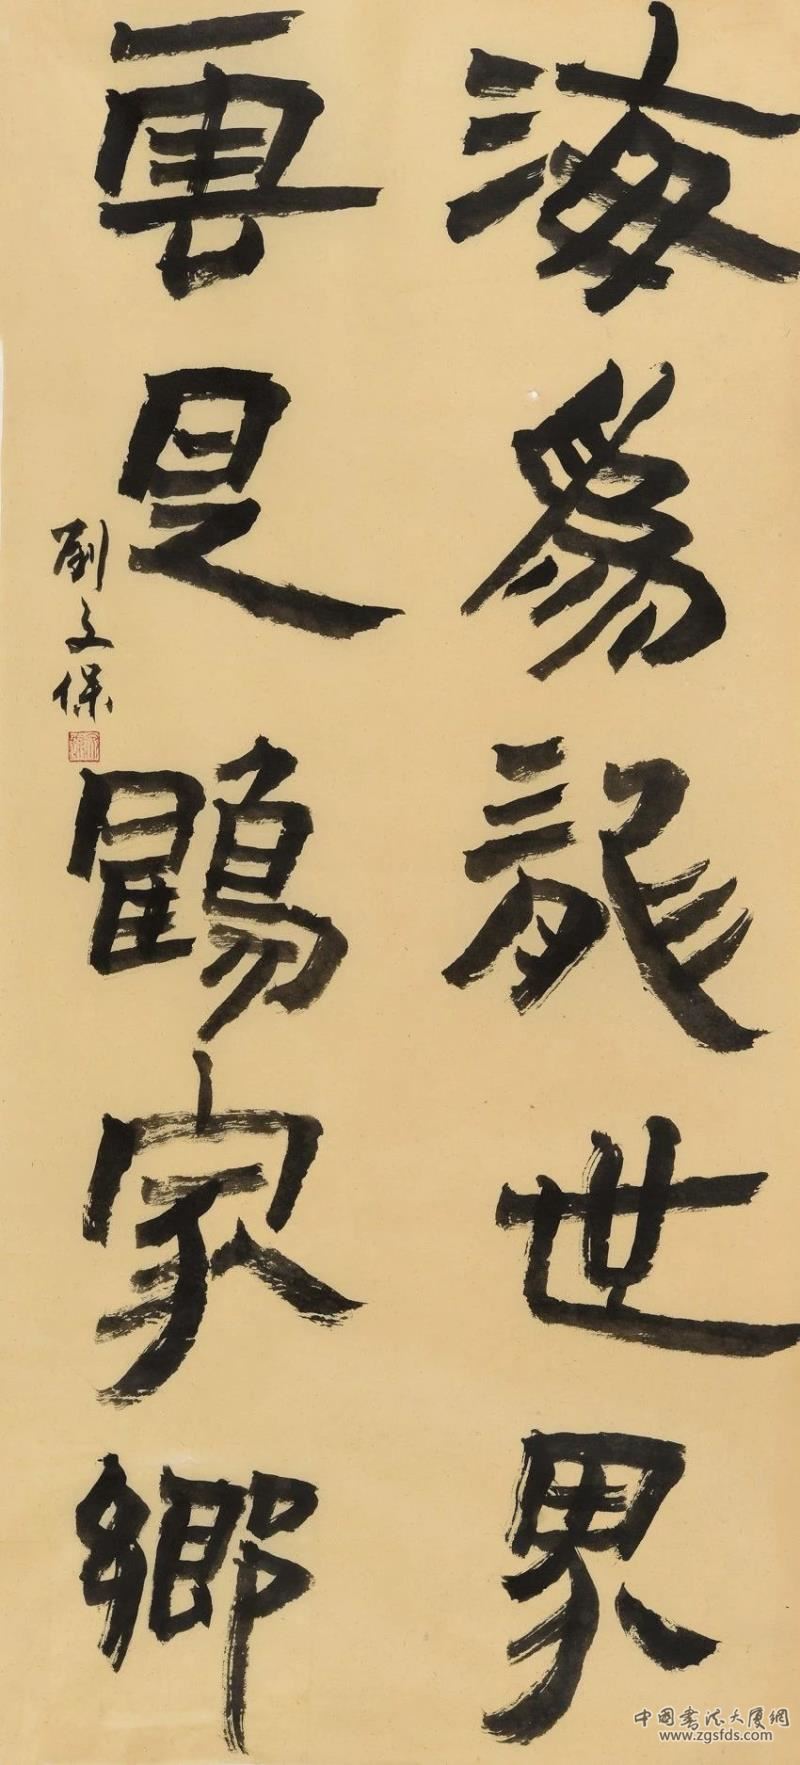 海為龍世界
雲是鶴家鄉
劉文保
中国书法大厦網
www.zgsfds.com